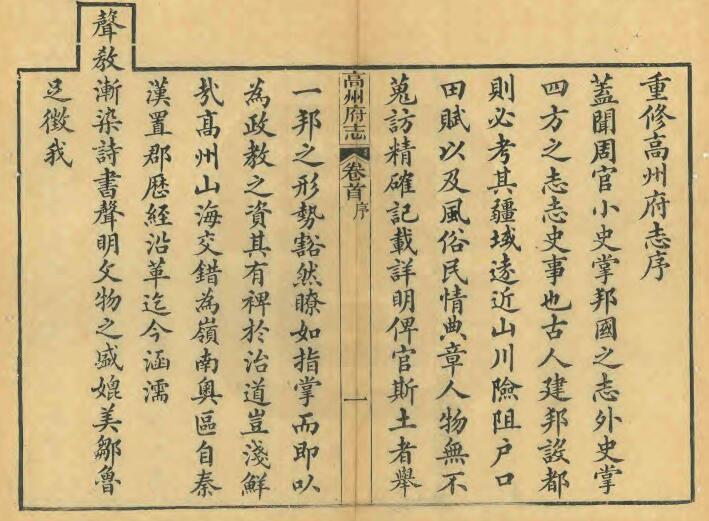 重修高州府志序
蓋聞周官小史掌邦國之志外史掌
四方之志志史事也古人建邦設都
則必考其疆域遠近山川險阻户口
田賦以及風俗民情典章人物無不
蒐訪精確記載詳明俾官斯土者舉
高州府志 卷首 序 一
一邦之形勢豁然瞭如指掌而即以
為政教之資其有裨於治道豈淺鮮
㢤高州山海交錯為嶺南奥區自秦
漢置郡歷經沿革迄今涵濡
聲教漸染詩書聲明文物之盛媲美鄒魯
足徵我